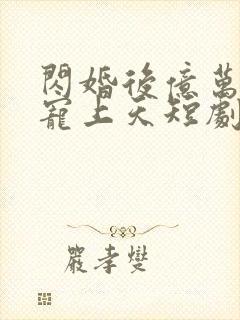 閃婚後億萬
寵上天短劇
嚴孝燮